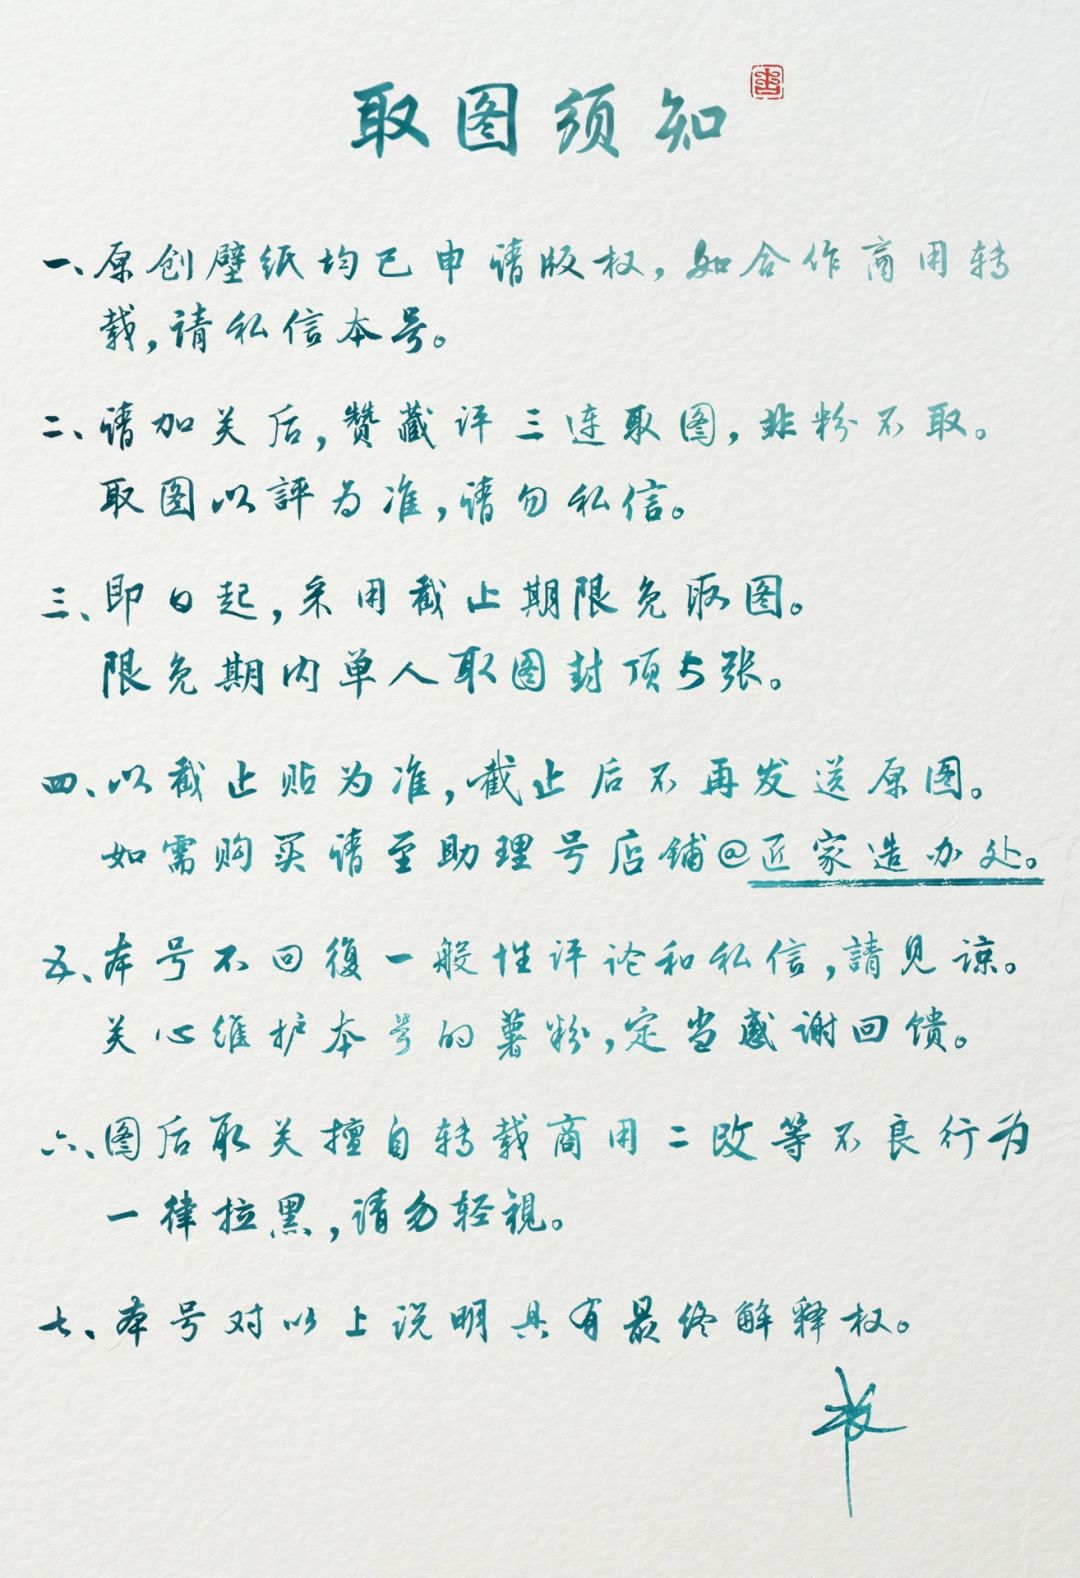 取图须知
一、原创壁纸均已申请版权，如合作商用转
载，请私信本号。
二、请加关后，赞藏评三连取图，非粉不取。
取图以評为准，请勿私信。
三、即日起，采用截止期限免取图。
限免期内单人取图封顶5张。
四、以截止贴为准，截止后不再发送原图。
如需购买请至助理号店铺@匠家造办处。
五、本号不回復一般性评论和私信，請见谅。
关心维护本号的薯粉，定当感谢回馈。
六、图后取关擅自转载商用二改等不良行为
一律拉黑，请勿轻視。
七、本号对以上说明具有最终解释权。